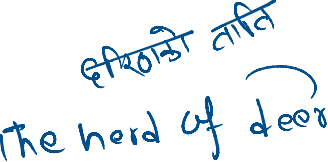 हरिणको ताति
The herd of deer